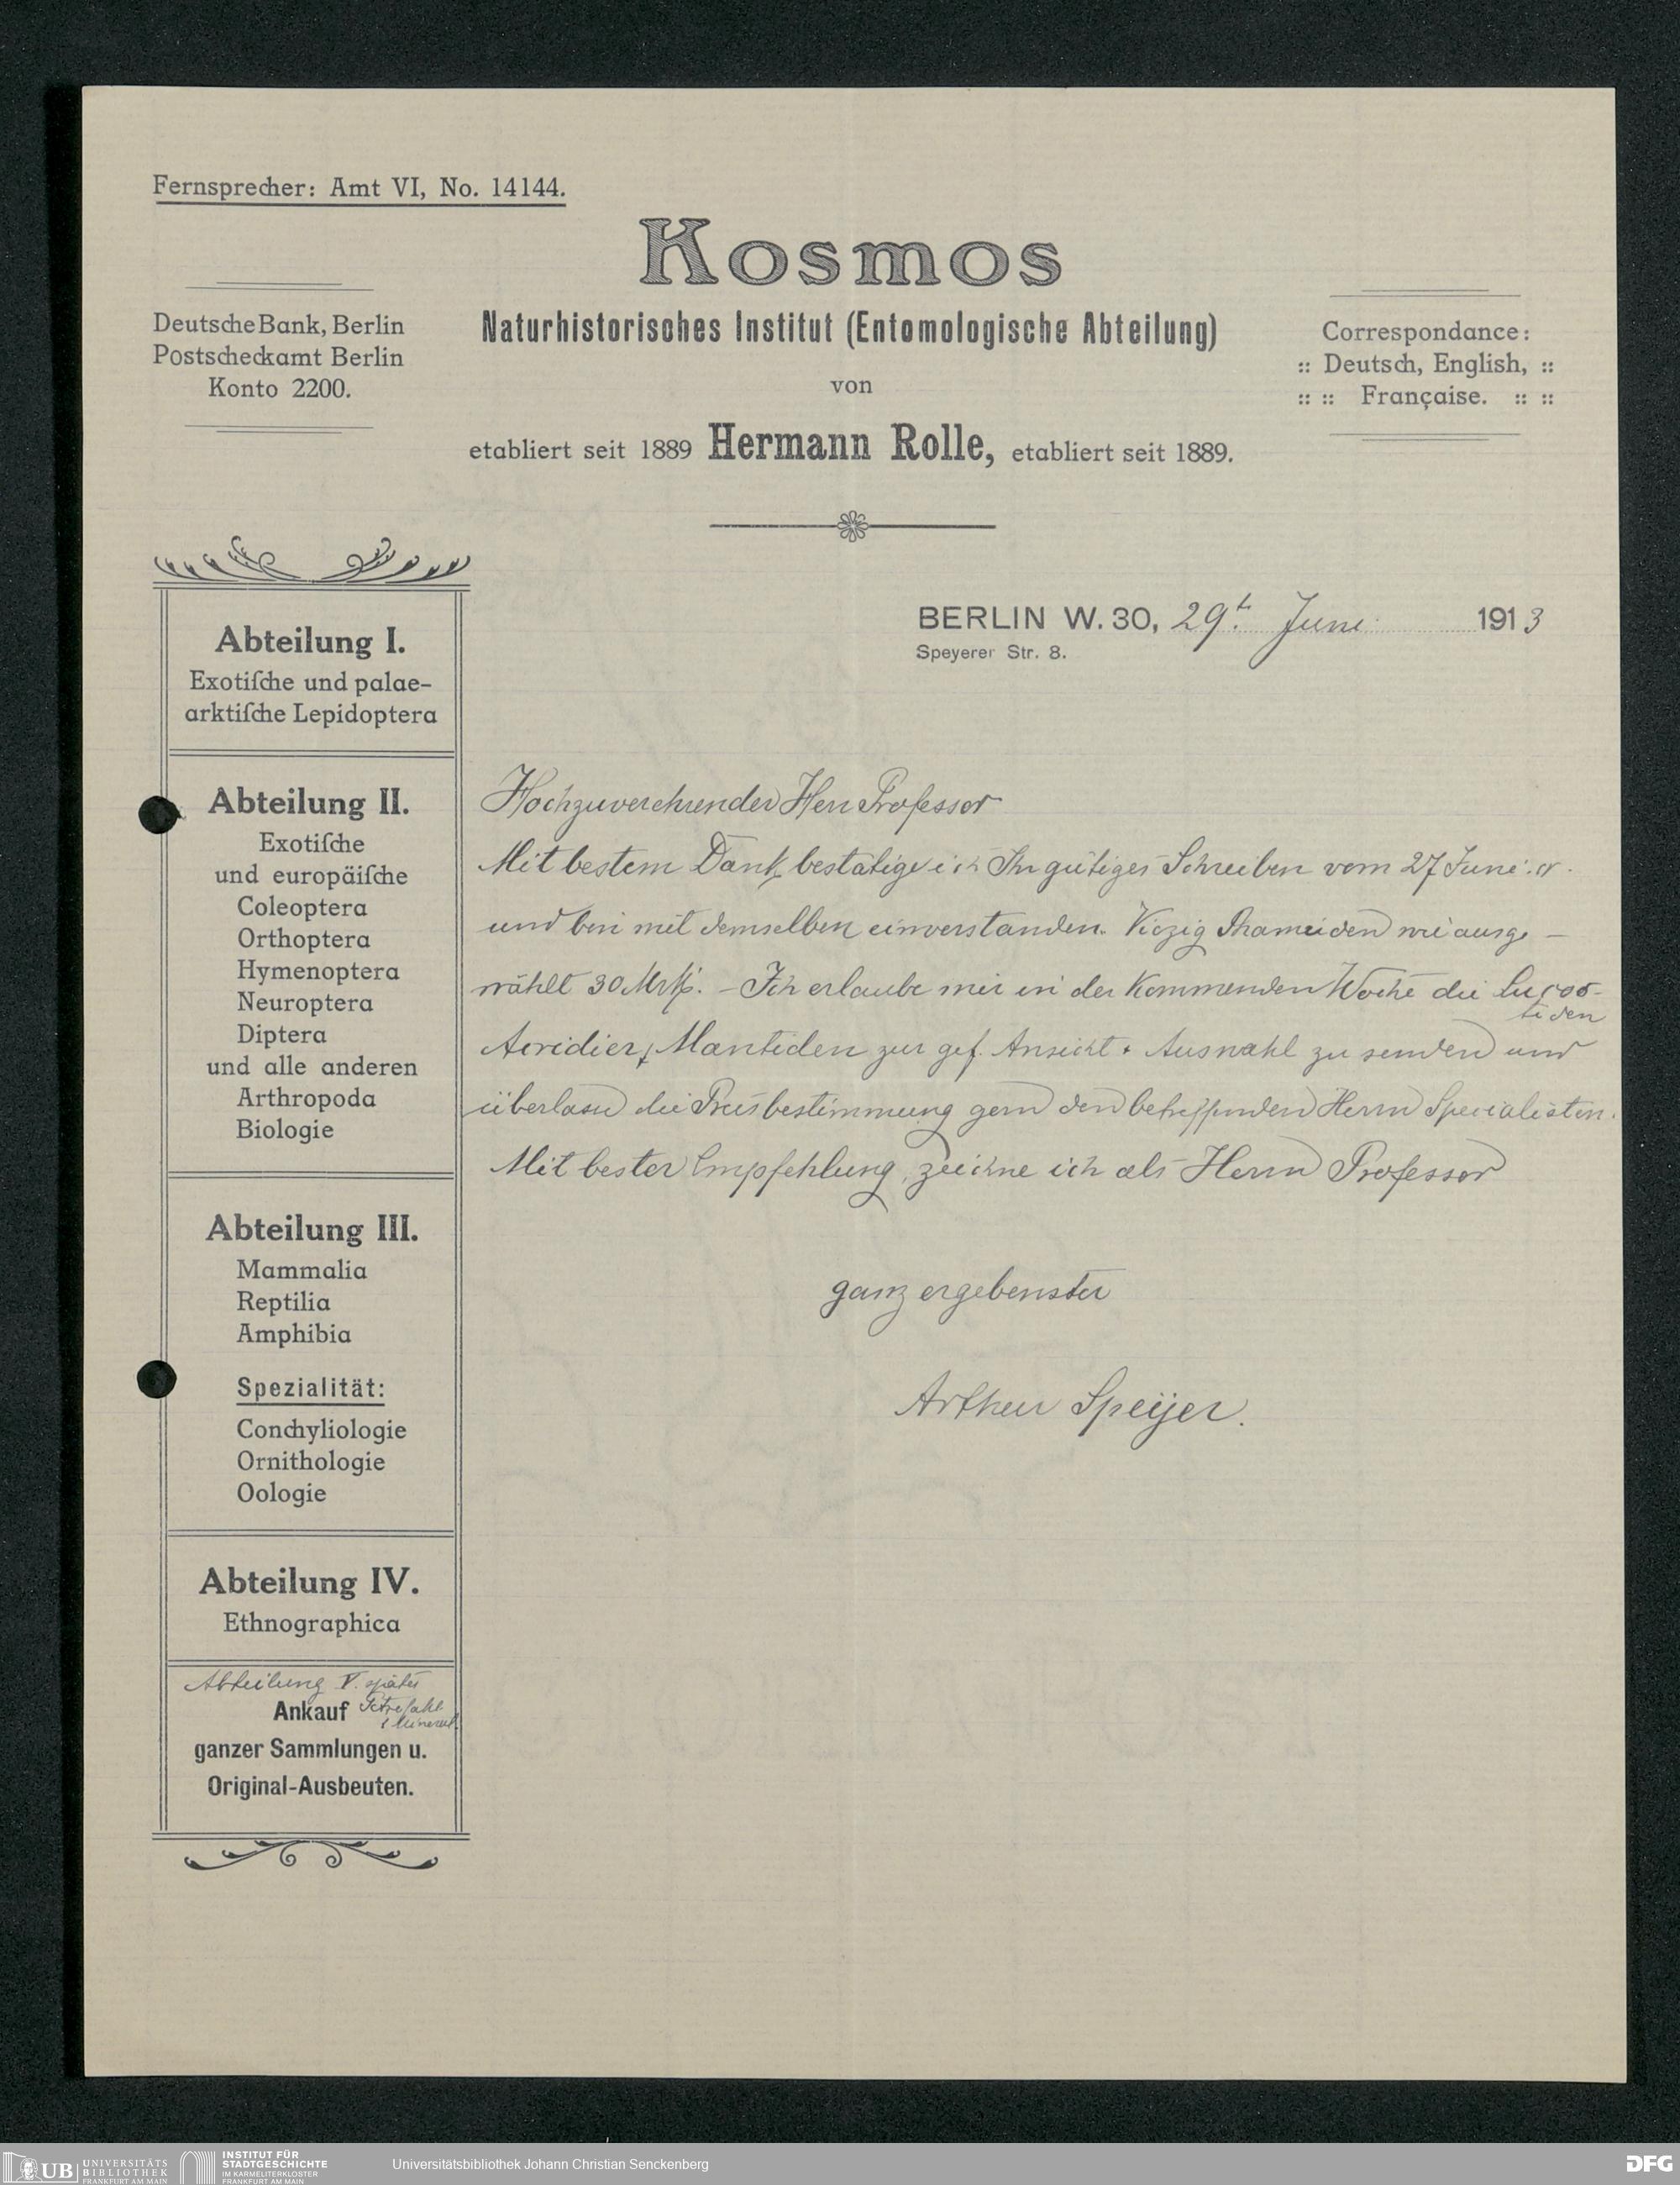 Fernsprecher: Amt VI, No. 14144.
Kosmos
Naturhistorisches Institut (Entomologische Abteilung)
von
etabliert seit 1889 Hermann Rolle, etabliert seit 1889.
Deutsche Bank, Berlin
Postscheckamt Berlin
Konto 2200.
Correspondance:
:: Deutsch, English, ::
:: :: Française. :: ::
BERLIN W. 30, 29t. Juni 1913
Speyerer Str. 8.
Abteilung I.
Exotiſche und palae-
arktiſche Lepidoptera
Abteilung II.
Exotiſche
und europäiſche
Coleoptera
Orthoptera
Hymenoptera
Neuroptera
Diptera
und alle anderen
Arthropoda
Biologie
Abteilung III.
Mammalia
Reptilia
Amphibia
Spezialität:
Conchyliologie
Ornithologie
Oologie
Abteilung IV.
Ethnographica
Abteilung V. später
Ankauf Petrefakt.
& Mineral
ganzer Sammlungen u.
Original-Ausbeuten.
Hochzuverehrender Herr Professor
Mit bestem Dank bestätige ich Ihr gütiges Schreiben vom 27 Juni. cr.
und bin mit demselben einverstanden. Vierzig wie ausge-
wählt 30 Mrk. - Ich erlaube mir in der Kommenden Woche die Locos-
tiden
Acridier, Mantiden zur gef. Ansicht + Auswahl zu senden und
überlasse die Preisbestimmung gern den betreffenden Herrn Specialisten.
Mit bester Empfehlung, zeichne ich als Herrn Professor
ganz ergebenster
Arthur Speyer.
UB UNIVERSITÄTS
BIBLIOTHEK
FRANKFURT AM MAIN
INSTITUT FÜR
STADTGESCHICHTE
IM KARMELITERKLOSTER
FRANKFURT AM MAIN
Universitätsbibliothek Johann Christian Senckenberg
DFG